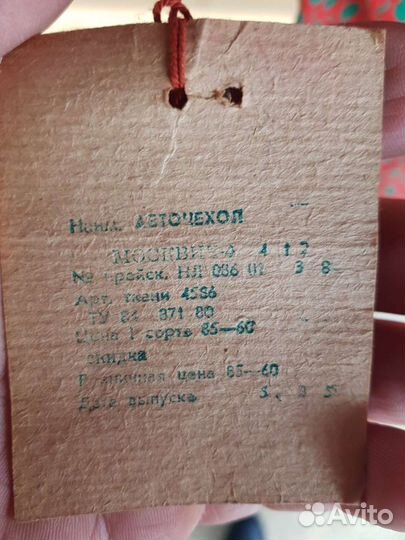 Наим. АВТОЧЕХОЛ
МОСКВИЧ-412
№ прейск. НЛ 086 01 38
Арт. ткани 4586
ТУ 84 871 80
Цена 1 сорта 85—60
скидка
Розничная цена 85—60
Дата выпуска
Avito